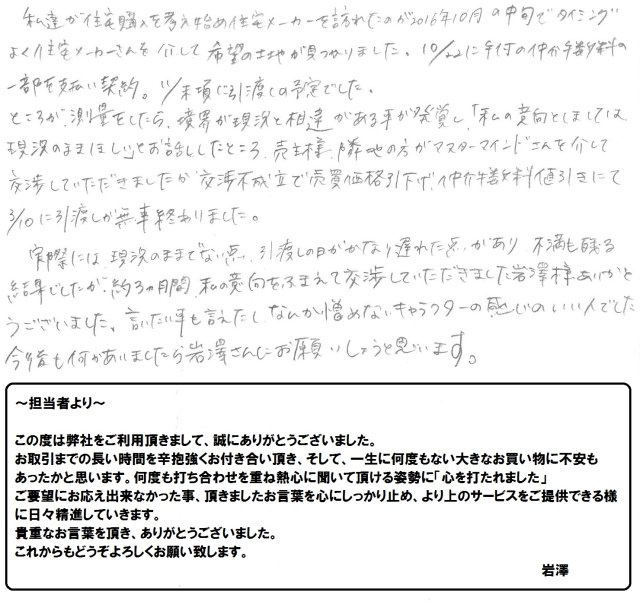 私達が住宅購入を考え始め住宅メーカーを訪れたのが2016年10月の中旬でタイミング
よく住宅メーカーさんを介して希望の土地が見つかりました。10/22に手付の仲介手数料の
一部を支払い契約。11/末頃に引渡しの予定でした。
ところが、測量をしたら、境界が現況と相違がある事が発覚し、「私の意向としましては
現況のままほしい」とお話ししたところ、売主様、隣地の方がマスターマインドさんを介して
交渉していただきましたが交渉不成立で売買価格引下げ、仲介手数料値引きにて
3/10に引渡しが無事終わりました。
実際には現況のままでない点、引渡しの日がかなり遅れた点、があり不満も残る
結果でしたが、約3ヵ月間私の意向をふまえて交渉していただきました岩澤様ありがと
うございました。言いたい事も言えたしなんか憎めないキャラクターの感じのいい人でした
今後も何かありましたら岩澤さんにお願いしようと思います。
～担当者より～
この度は弊社をご利用頂きまして、誠にありがとうございました。
お取引までの長い時間を辛抱強くお付き合い頂き、そして、一生に何度もない大きなお買い物に不安も
あったかと思います。何度も打ち合わせを重ね熱心に聞いて頂ける姿勢に「心を打たれました」
ご要望にお応え出来なかった事、頂きましたお言葉を心にしっかり止め、より上のサービスをご提供できる様
に日々精進していきます。
貴重なお言葉を頂き、ありがとうございました。
これからもどうぞよろしくお願い致します。
岩澤